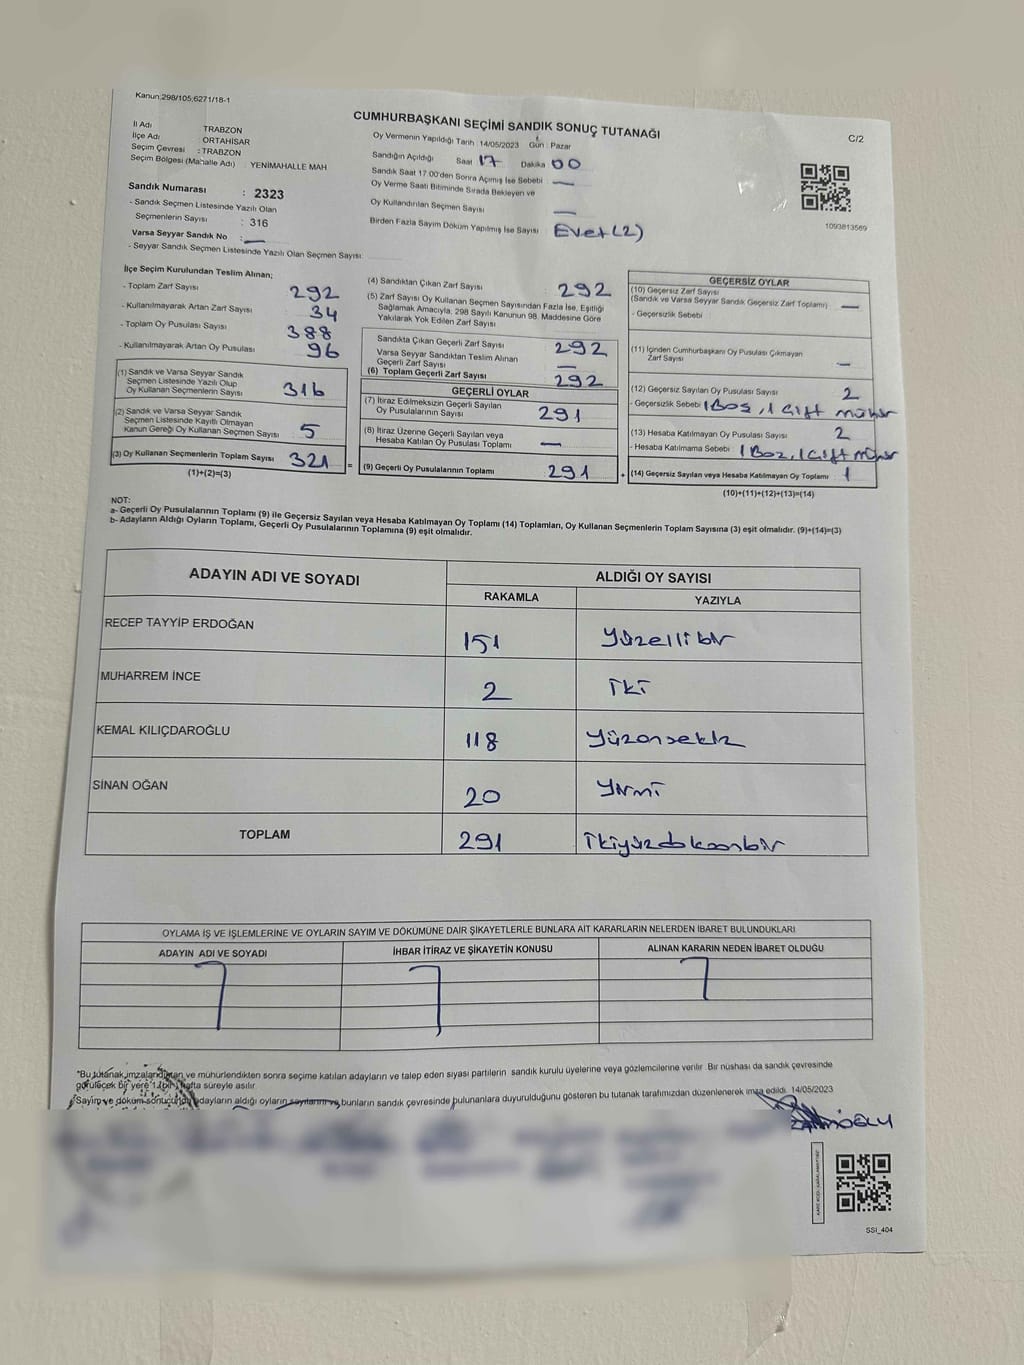 Kanun:298/105;6271/18-1
CUMHURBAŞKANI SEÇİMİ SANDIK SONUÇ TUTANAĞI
C/2
İl Adı TRABZON
İlçe Adı ORTAHİSAR
Seçim Çevresi : TRABZON
Seçim Bölgesi (Mahalle Adı) : YENİMAHALLE MAH
Sandık Numarası : 2323
- Sandık Seçmen Listesinde Yazılı Olan
Seçmenlerin Sayısı : 316
Varsa Seyyar Sandık No : —
- Seyyar Sandık Seçmen Listesinde Yazılı Olan Seçmen Sayısı:
Oy Vermenin Yapıldığı Tarih : 14/05/2023 Gün : Pazar
Sandığın Açıldığı Saat 17 Dakika 00
Sandık Saat 17.00'den Sonra Açımış İse Sebebi : —
Oy Verme Saati Bitiminde Sırada Bekleyen ve
Oy Kullandırılan Seçmen Sayısı : —
Birden Fazla Sayım Döküm Yapılmış İse Sayısı : Evet (2)
1093813569
İlçe Seçim Kurulundan Teslim Alınan;
- Toplam Zarf Sayısı 292
- Kullanılmayarak Artan Zarf Sayısı 34
- Toplam Oy Pusulası Sayısı 388
- Kullanılmayarak Artan Oy Pusulası 96
(1) Sandık ve Varsa Seyyar Sandık
Seçmen Listesinde Yazılı Olup
Oy Kullanan Seçmenlerin Sayısı 316
(2) Sandık ve Varsa Seyyar Sandık
Seçmen Listesinde Kayıtlı Olmayan
Kanun Gereği Oy Kullanan Seçmen Sayısı 5
(3) Oy Kullanan Seçmenlerin Toplam Sayısı 321
(1)+(2)=(3)
(4) Sandıktan Çıkan Zarf Sayısı : 292
(5) Zarf Sayısı Oy Kullanan Seçmen Sayısından Fazla İse, Eşitliği
Sağlamak Amacıyla, 298 Sayılı Kanunun 98. Maddesine Göre
Yakılarak Yok Edilen Zarf Sayısı
Sandıkta Çıkan Geçerli Zarf Sayısı : 292
Varsa Seyyar Sandıktan Teslim Alınan
Geçerli Zarf Sayısı : —
(6) Toplam Geçerli Zarf Sayısı : 292
GEÇERLİ OYLAR
(7) İtiraz Edilmeksizin Geçerli Sayılan
Oy Pusulalarının Sayısı : 291
(8) İtiraz Üzerine Geçerli Sayılan veya
Hesaba Katılan Oy Pusulası Toplamı : —
= (9) Geçerli Oy Pusulalarının Toplamı : 291
GEÇERSİZ OYLAR
(10) Geçersiz Zarf Sayısı
(Sandık ve Varsa Seyyar Sandık Geçersiz Zarf Toplamı) : —
- Geçersizlik Sebebi :
(11) İçinden Cumhurbaşkanı Oy Pusulası Çıkmayan
Zarf Sayısı : —
(12) Geçersiz Sayılan Oy Pusulası Sayısı : 2
- Geçersizlik Sebebi : 1 Boş, 1 Çift mühür
(13) Hesaba Katılmayan Oy Pusulası Sayısı : 2
- Hesaba Katılmama Sebebi : 1 Boz, 1 Çift mühür
+ (14) Geçersiz Sayılan veya Hesaba Katılmayan Oy Toplamı : 1
(10)+(11)+(12)+(13)=(14)
NOT:
a- Geçerli Oy Pusulalarının Toplamı (9) ile Geçersiz Sayılan veya Hesaba Katılmayan Oy Toplamı (14) Toplamları, Oy Kullanan Seçmenlerin Toplam Sayısına (3) eşit olmalıdır. (9)+(14)=(3)
b- Adayların Aldığı Oyların Toplamı, Geçerli Oy Pusulalarının Toplamına (9) eşit olmalıdır.
ADAYIN ADI VE SOYADI
ALDIĞI OY SAYISI
RAKAMLA YAZIYLA
RECEP TAYYİP ERDOĞAN 151 yüzellibir
MUHARREM İNCE 2 iki
KEMAL KILIÇDAROĞLU 118 yüzonsekiz
SİNAN OĞAN 20 yirmi
TOPLAM 291 ikiyüzdoksanbir
OYLAMA İŞ VE İŞLEMLERİNE VE OYLARIN SAYIM VE DÖKÜMÜNE DAİR ŞİKAYETLERLE BUNLARA AİT KARARLARIN NELERDEN İBARET BULUNDUKLARI
ADAYIN ADI VE SOYADI İHBAR İTİRAZ VE ŞİKAYETİN KONUSU ALINAN KARARIN NEDEN İBARET OLDUĞU
*Bu tutanak imzalandıktan ve mühürlendikten sonra seçime katılan adayların ve talep eden siyasi partilerin sandık kurulu üyelerine veya gözlemcilerine verilir. Bir nüshası da sandık çevresinde
görülecek bir yere 1 (bir) hafta süreyle asılır.
*Sayım ve döküm sonucunda adayların aldığı oyların sayılarını ve bunların sandık çevresinde bulunanlara duyurulduğunu gösteren bu tutanak tarafımızdan düzenlenerek imza edildi. 14/05/2023
SSI_404